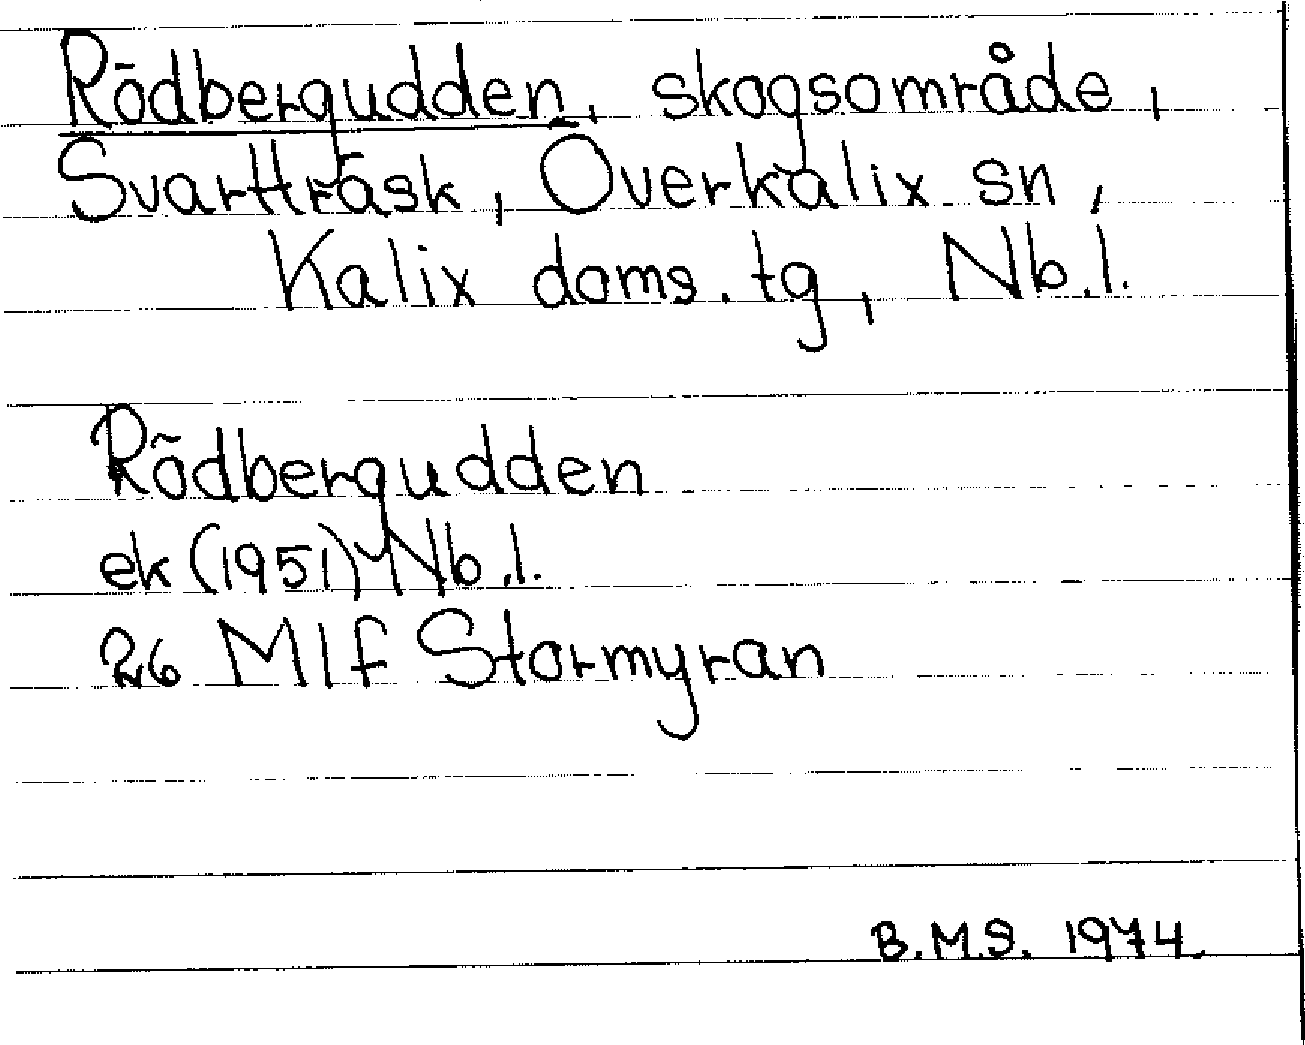 Rödbergudden, skogsområde,
Svartträsk, Överkalix sn,
Kalix doms. tg, Nb.l.
Rödbergudden
ek (1951) Nb.l.
26 M1f Stormyran
B.M.S. 1974